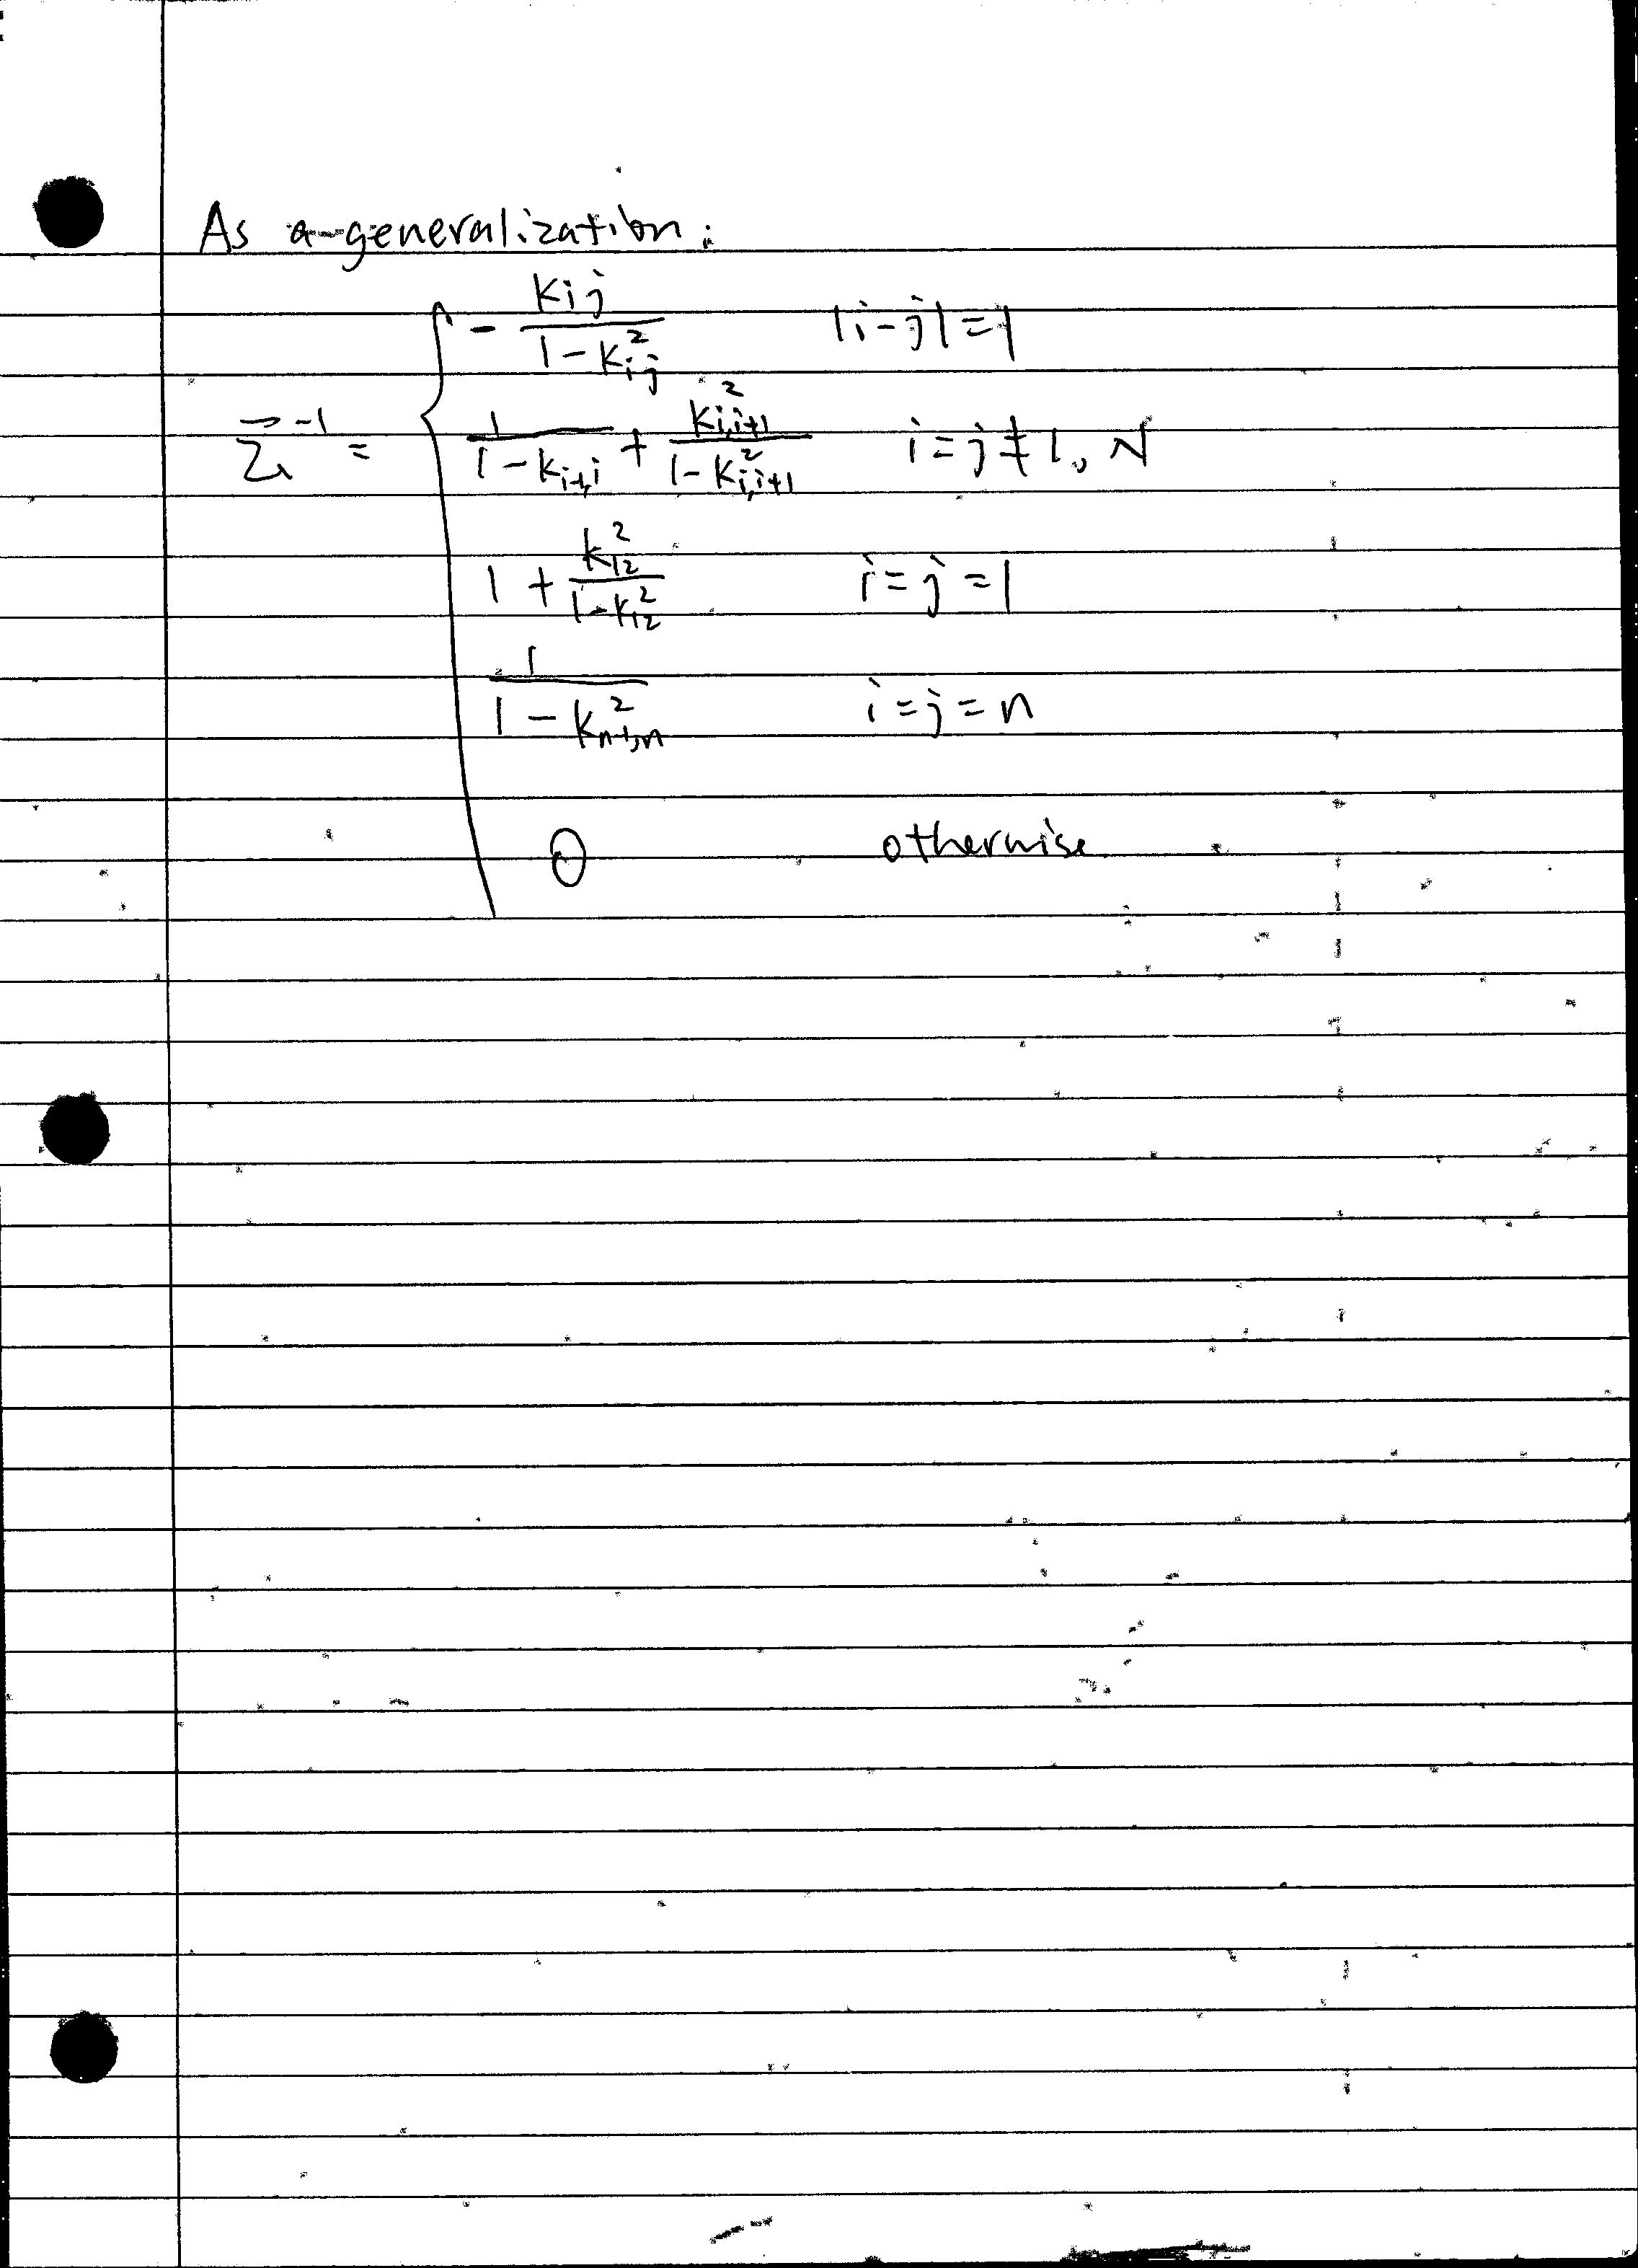 As a generalization:
$\Sigma^{-1} = \begin{cases} -\frac{k_{ij}}{1-k_{ij}^2} & |i-j|=1 \\ \frac{1}{1-k_{i-1,i}} + \frac{k_{i,i+1}^2}{1-k_{i,i+1}^2} & i=j\neq 1, N \\ 1+\frac{k_{12}^2}{1-k_{12}^2} & i=j=1 \\ \frac{1}{1-k_{n-1,n}^2} & i=j=n \\ 0 & \text{otherwise} \end{cases}$